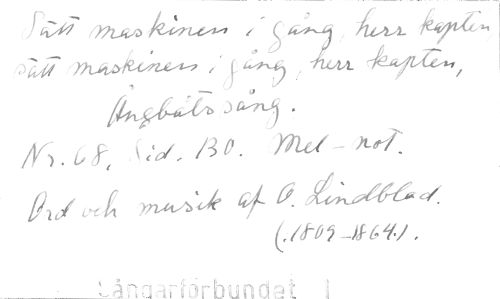 Sätt maskinen i gång, herr kapten,
sätt maskinen i gång, herr kapten,
Ångbåtssång.
Nr. 68, Sid. 130. Mel-not.
Ord och musik af O. Lindblad.
(.1809-1864.).
Sångarförbundet I